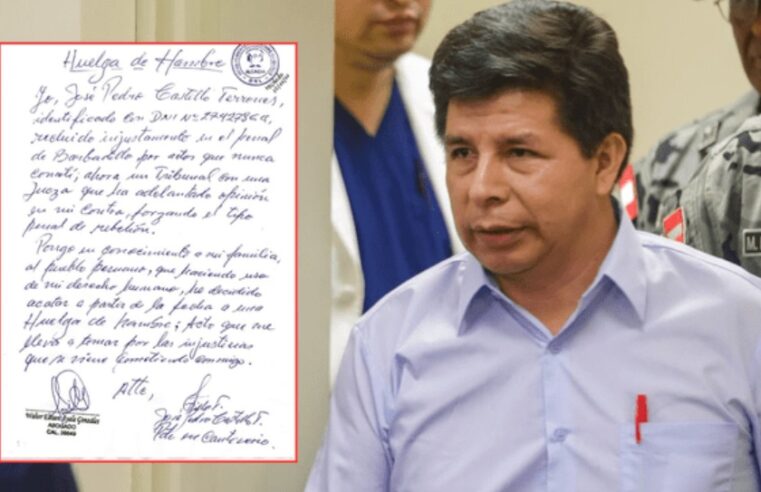 Huelga de Hambre
Yo, José Pedro Castillo Terrones,
identificado con DNI N°
recluido injustamente en el penal
de Barbadillo por actos que nunca
cometí; ahora un Tribunal con una
Jueza que ha adelantado opinión
en mi contra, forzando el tipo
penal de rebelión.
Pongo en conocimiento a mi familia,
al pueblo peruano, que haciendo uso
de mi derecho humano, he decidido
acatar a partir de la fecha a una
Huelga de hambre; Acto que me
llevó a tomar por las injusticias
que se viene cometiendo conmigo.
Atte,
José Pedro Castillo T.
ABOGADO
M.